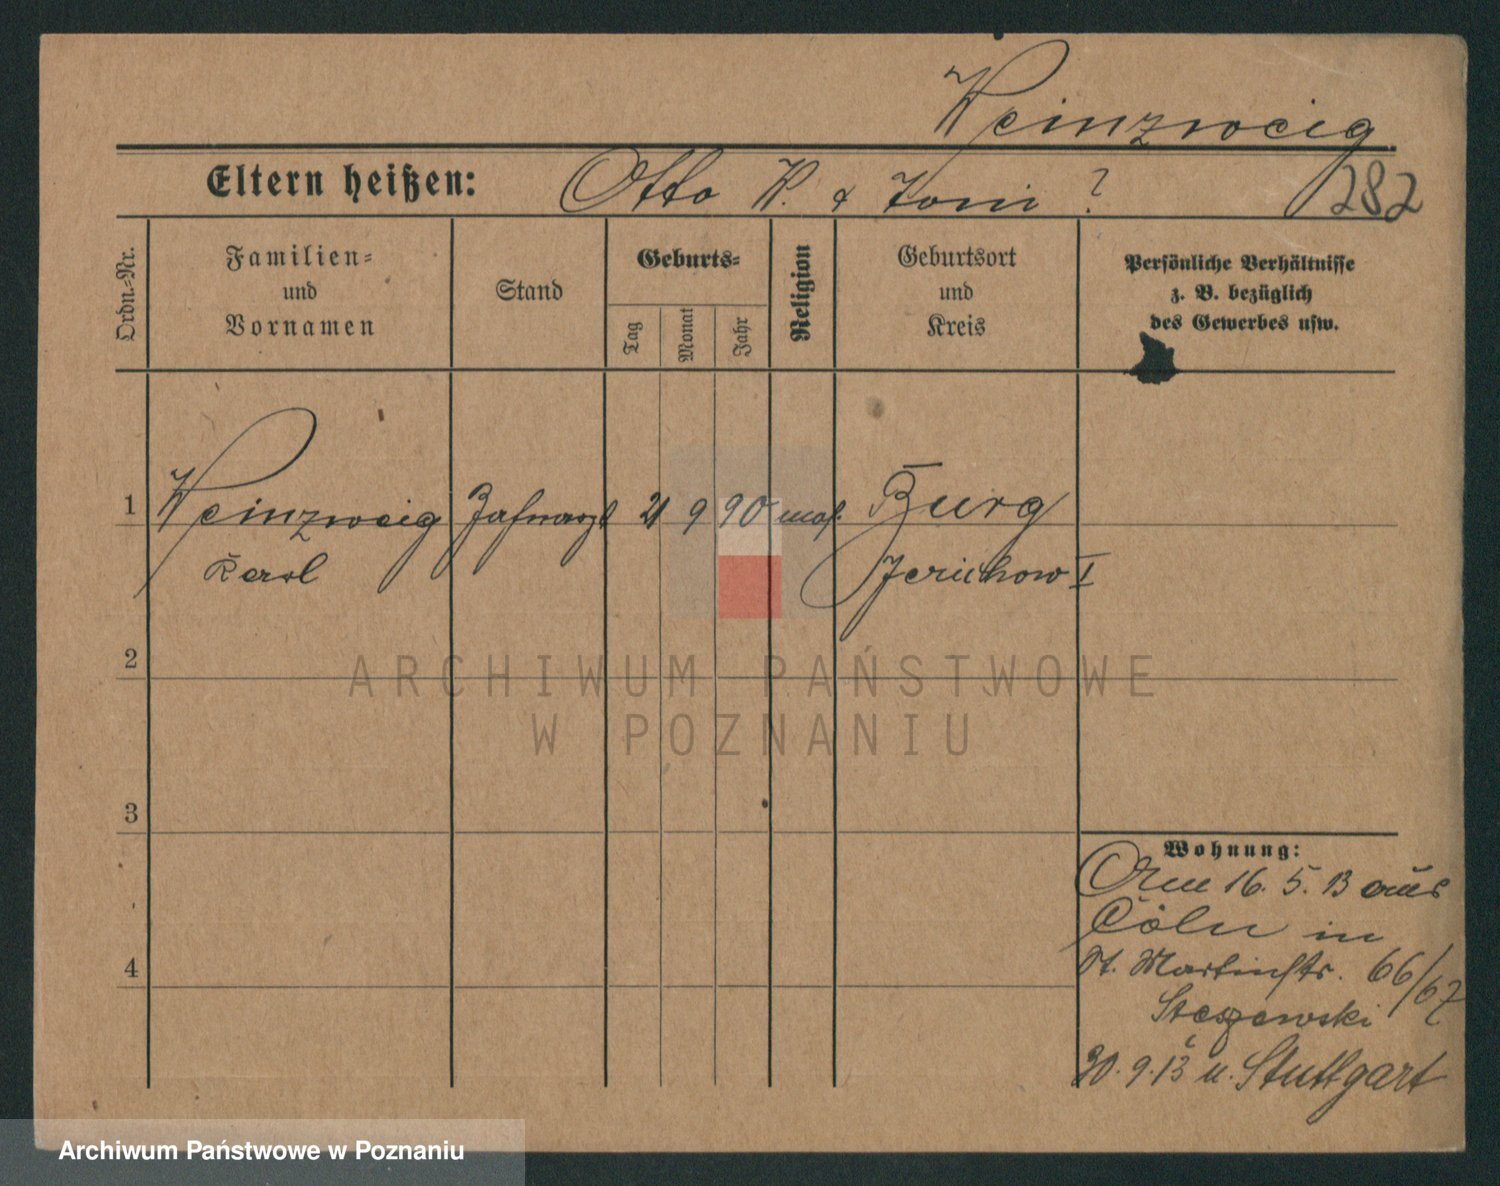 Weinzweig.
Eltern heißen: Otto W. & Toni ?
282
Ordn.-Nr.
Familien-
und
Vornamen
Stand
Geburts-
Tag
Monat
Jahr
Religion
Geburtsort
und
Kreis
Persönliche Verhältnisse
z. B. bezüglich
des Gewerbes usw.
1 Weinzweig Zahnarzt 21 9 90 mos. Burg
Karl Jerichow I
2
ARCHIWUM PAŃSTWOWE
W POZNANIU
3
4
Wohnung:
Am 16. 5. 13 aus
Cöln in
St. Martinstr. 66/67
Stęszewski
30. 9. 13 n. Stuttgart
Archiwum Państwowe w Poznaniu